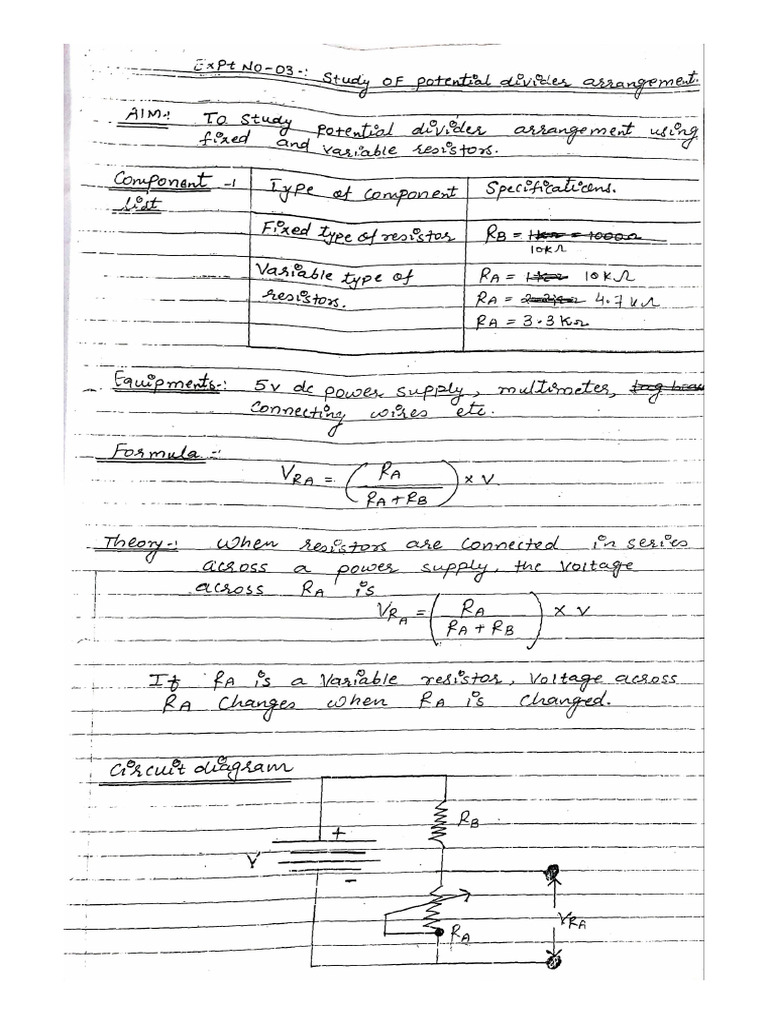 Expt No-03-: Study of potential divider arrangement.
AIM-: To study potential divider arrangement using
fixed and variable resistors.
Component -: Type of component Specifications.
list
Fixed type of resistor RB = 1kΩ = 1000Ω
10kΩ
Variable type of RA = 1kΩ 10kΩ
resistors. RA = 2.2kΩ 4.7kΩ
RA = 3.3kΩ
Equipments-: 5v dc power supply, multimeter,
connecting wires etc.
Formula -:
VRA = (RA / RA+RB) × V
Theory-: When resistors are connected in series
across a power supply, the voltage
across RA is
VRA = (RA / RA+RB) × V
If RA is a variable resistor, voltage across
RA changes when RA is changed.
Circuit diagram
RB
+
V
-
VRA
RA